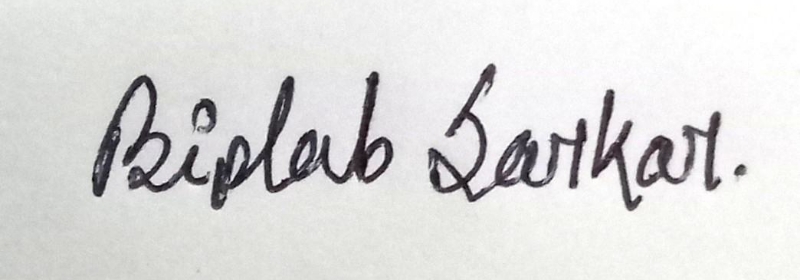 Biplab Sarkar.